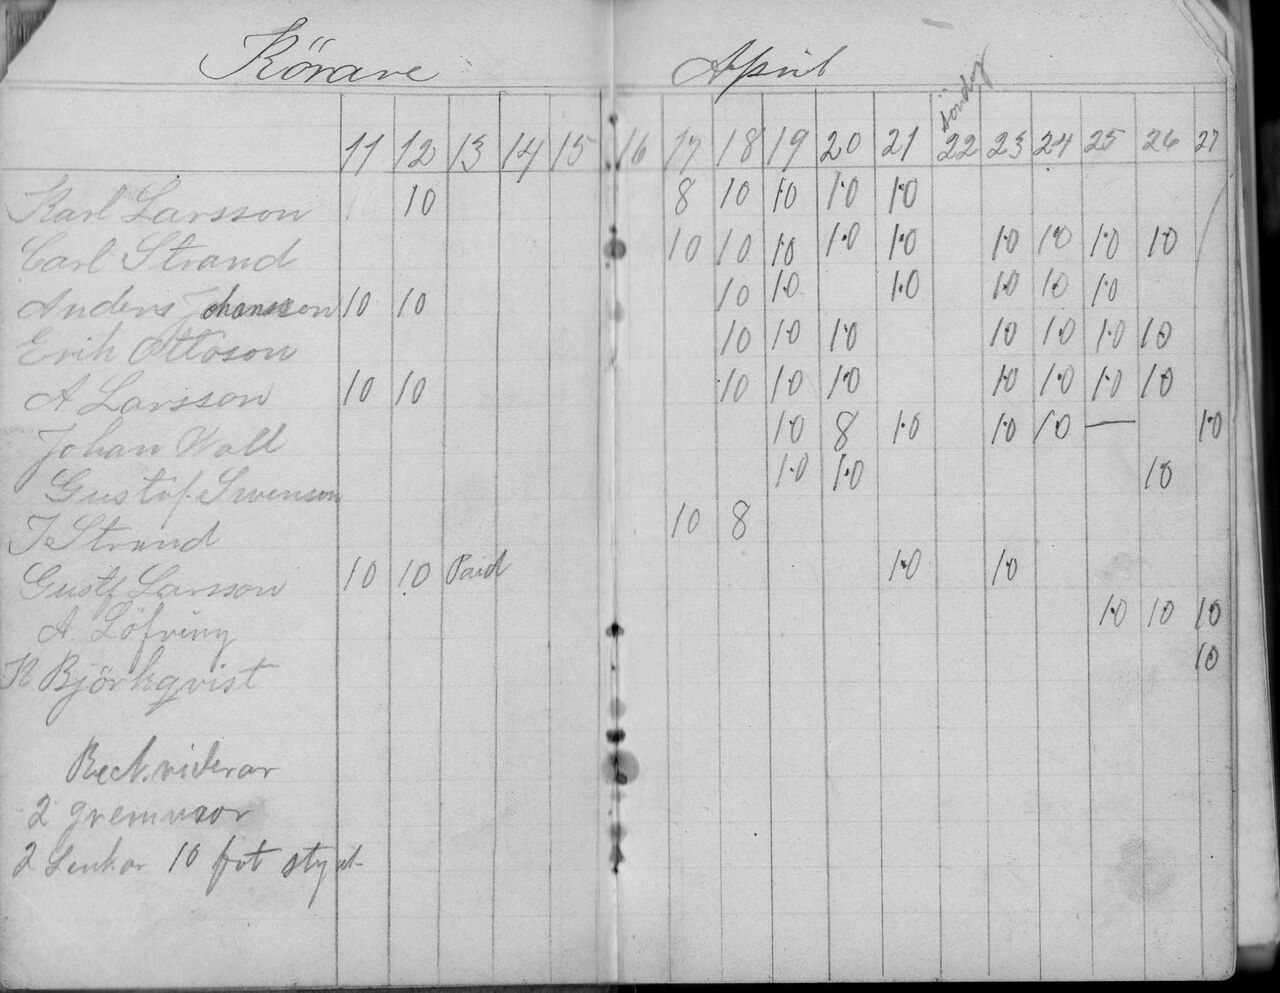 Körare April
Söndag
11 12 13 14 15 16 17 18 19 20 21 22 23 24 25 26 27
Karl Larsson 10 8 10 10 10 10
Carl Strand 10 10 10 10 10 10 10 10 10
Anders Johansson 10 10 10 10 10 10 10 10
Erik Ottoson 10 10 10 10 10 10 10
A Larsson 10 10 10 10 10 10 10 10 10
Johan Wall 10 8 10 10 10 — 10
Gustof Swenson 10 10 10
J Strand 10 8
Gustf Larsson 10 10 Paid 10 10
A. Löfving 10 10 10
K Björkqvist 10
2
2 Lenkar 10 fot